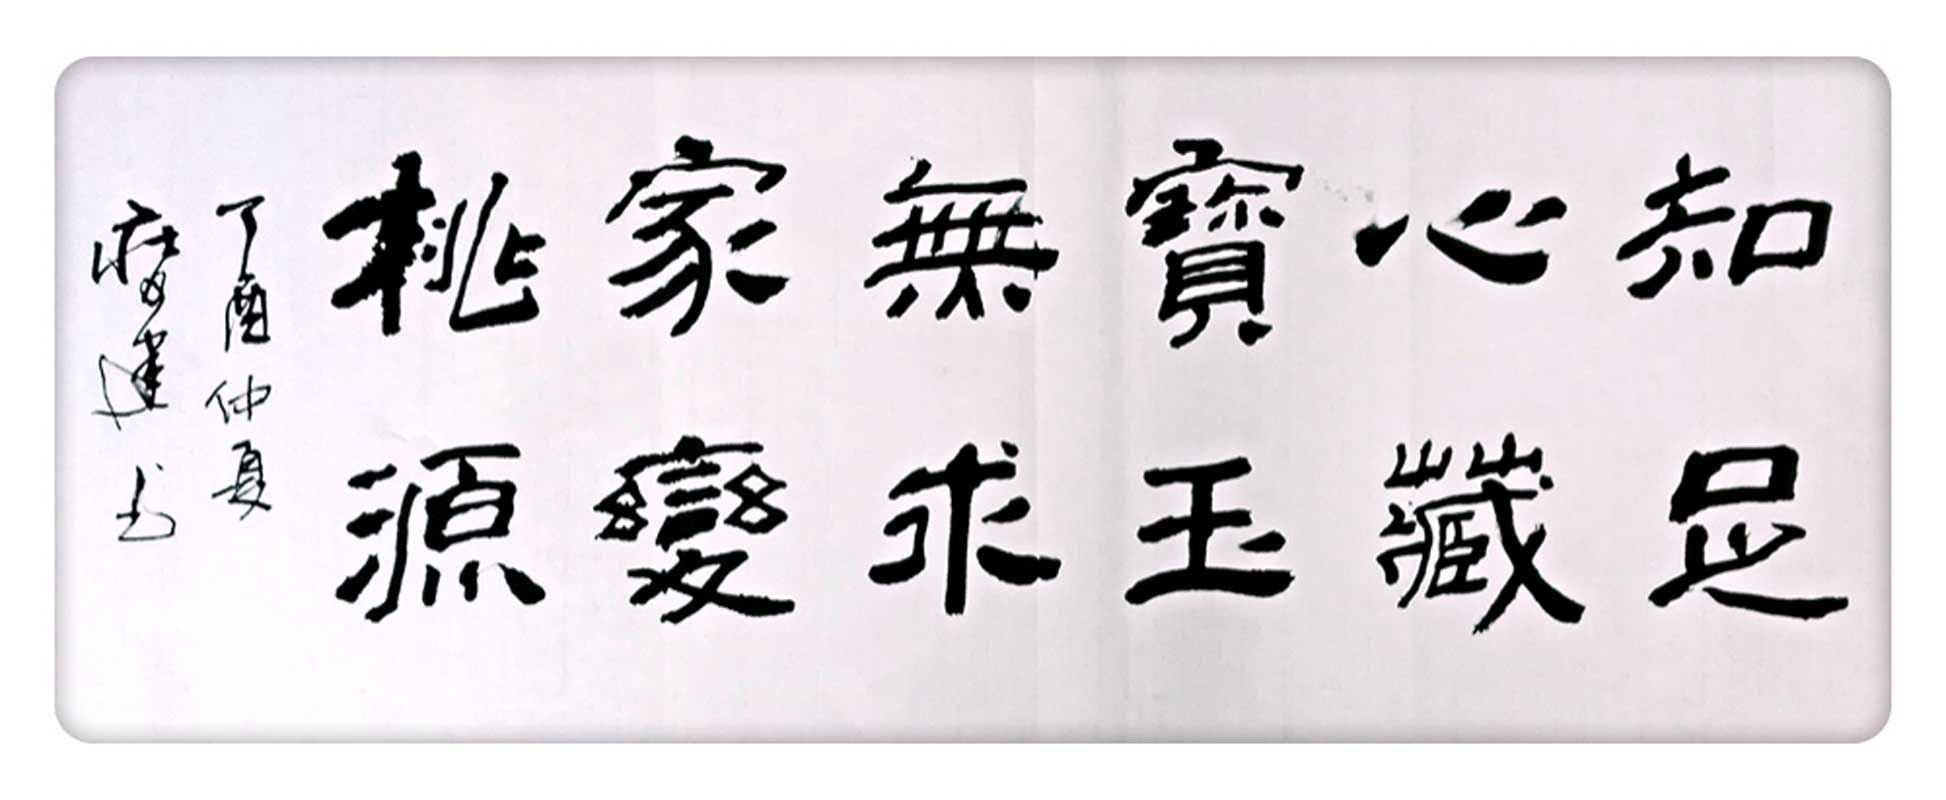 知足
心藏
寶玉
無求
家變
桃源
丁酉仲夏
建书